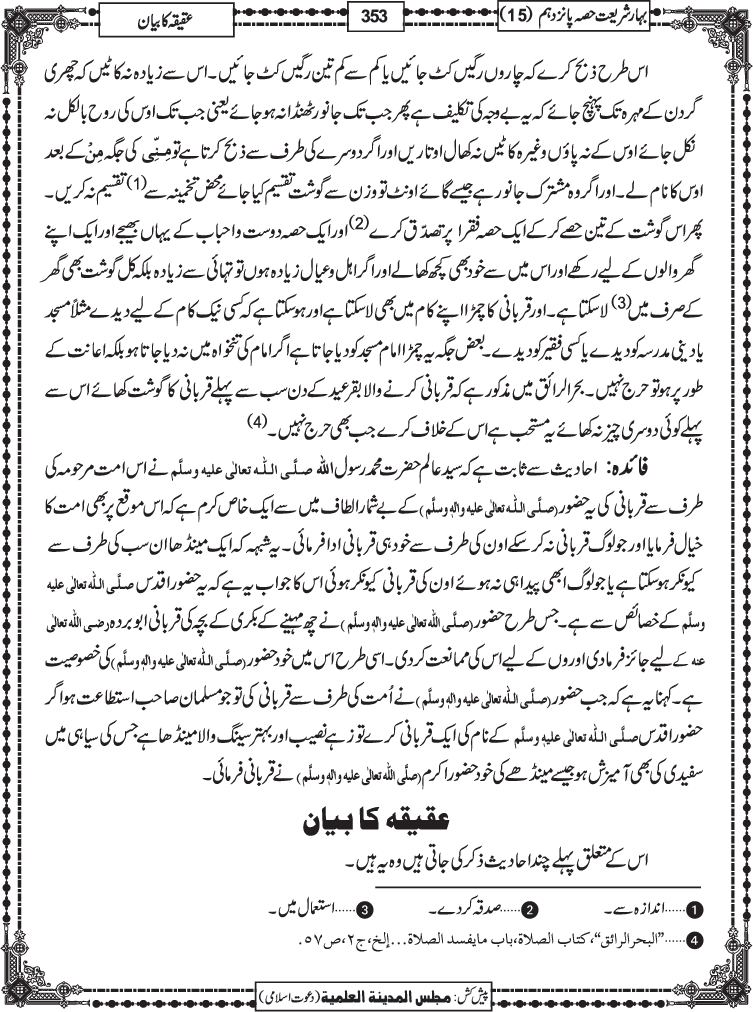 بہارِ شریعت حصہ پانزدہم (15)
353
عقیقہ کا بیان
اس طرح ذبح کرے کہ چاروں رگیں کٹ جائیں یا کم سے کم تین رگیں کٹ جائیں۔ اس سے زیادہ نہ کاٹیں کہ چھری
گردن کے مہرہ تک پہنچ جائے کہ یہ بے وجہ کی تکلیف ہے پھر جب تک جانور ٹھنڈا نہ ہو جائے یعنی جب تک اوس کی روح بالکل نہ
نکل جائے اوس کے نہ پاؤں وغیرہ کاٹیں نہ کھال اوتاریں اور اگر دوسرے کی طرف سے ذبح کرتا ہے تو مِنِّی کی جگہ مِنْ کے بعد
اوس کا نام لے۔ اور اگر وہ مشترک جانور ہے جیسے گائے اونٹ تو وزن سے گوشت تقسیم کیا جائے محض تخمینہ سے(1) تقسیم نہ کریں۔
پھر اس گوشت کے تین حصے کر کے ایک حصہ فقرا پر تصدّق کرے(2) اور ایک حصہ دوست و احباب کے یہاں بھیجے اور ایک اپنے
گھر والوں کے لیے رکھے اور اس میں سے خود بھی کچھ کھا لے اور اگر اہل و عیال زیادہ ہوں تو تہائی سے زیادہ بلکہ کل گوشت بھی گھر
کے صرف میں(3) لا سکتا ہے۔ اور قربانی کا چمڑا اپنے کام میں بھی لا سکتا ہے اور ہو سکتا ہے کہ کسی نیک کام کے لیے دیدے مثلاً مسجد
یا دینی مدرسہ کو دیدے یا کسی فقیر کو دیدے۔ بعض جگہ یہ چمڑا امام مسجد کو دیا جاتا ہے اگر امام کی تنخواہ میں نہ دیا جاتا ہو بلکہ اعانت کے
طور پر ہو تو حرج نہیں۔ بحر الرائق میں مذکور ہے کہ قربانی کرنے والا بقر عید کے دن سب سے پہلے قربانی کا گوشت کھائے اس سے
پہلے کوئی دوسری چیز نہ کھائے یہ مستحب ہے اس کے خلاف کرے جب بھی حرج نہیں۔(4)
فائدہ: احادیث سے ثابت ہے کہ سید عالم حضرت محمد رسول اللہ صلَّی اللہ تعالٰی علیہ وسلَّم نے اس امت مرحومہ کی
طرف سے قربانی کی یہ حضور (صلَّی اللہ تعالٰی علیہ واٰلہٖ وسلَّم) کے بے شمار الطاف میں سے ایک خاص کرم ہے کہ اس موقع پر بھی امت کا
خیال فرمایا اور جو لوگ قربانی نہ کر سکے اون کی طرف سے خود ہی قربانی ادا فرمائی۔ یہ شبہہ کہ ایک مینڈھا ان سب کی طرف سے
کیونکر ہو سکتا ہے یا جو لوگ ابھی پیدا ہی نہ ہوئے اون کی قربانی کیونکر ہوئی اس کا جواب یہ ہے کہ یہ حضور اقدس صلَّی اللہ تعالٰی علیہ
وسلَّم کے خصائص سے ہے۔ جس طرح حضور (صلَّی اللہ تعالٰی علیہ واٰلہٖ وسلَّم) نے چھ مہینے کے بکری کے بچہ کی قربانی ابو بردہ رضی اللہ تعالٰی
عنہ کے لیے جائز فرما دی اوروں کے لیے اس کی ممانعت کر دی۔ اسی طرح اس میں خود حضور (صلَّی اللہ تعالٰی علیہ واٰلہٖ وسلَّم) کی خصوصیت
ہے۔ کہنا یہ ہے کہ جب حضور (صلَّی اللہ تعالٰی علیہ واٰلہٖ وسلَّم) نے اُمت کی طرف سے قربانی کی تو جو مسلمان صاحب استطاعت ہو اگر
حضور اقدس صلَّی اللہ تعالٰی علیہ وسلَّم کے نام کی ایک قربانی کرے تو زہے نصیب اور بہتر سینگ والا مینڈھا ہے جس کی سیاہی میں
سفیدی کی بھی آمیزش ہو جیسے مینڈھے کی خود حضور اکرم (صلَّی اللہ تعالٰی علیہ واٰلہٖ وسلَّم) نے قربانی فرمائی۔
عقیقہ کا بیان
اس کے متعلق پہلے چند احادیث ذکر کی جاتی ہیں وہ یہ ہیں۔
1......اندازہ سے۔ 2......صدقہ کر دے۔ 3......استعمال میں۔
4......"البحرالرائق"، کتاب الصلاۃ، باب مایفسد الصلاۃ...إلخ، ج۲، ص۵۷.
پیش کش: مجلس المدینۃ العلمیۃ (دعوتِ اسلامی)